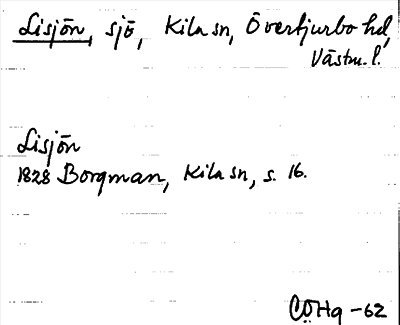 Lisjön, sjö, Kila sn, Övertjurbo hd,
Västm. l.
Lisjön
1828 Borgman, Kila sn, s. 16.
COHg -62